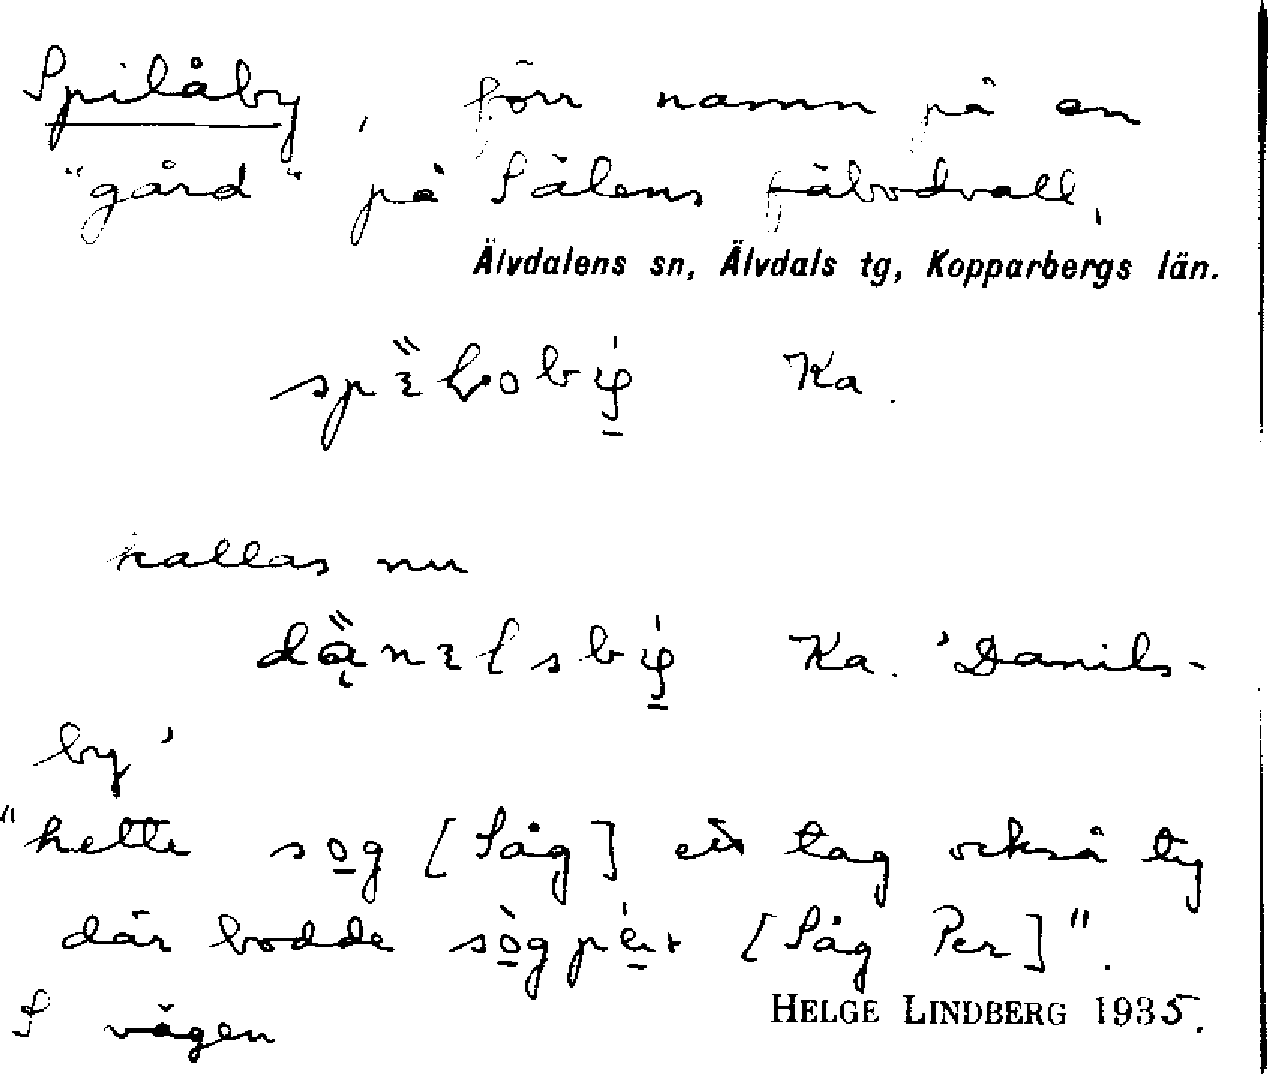 Spilåby, förr namn på en
"gård" på Sälens fäbodvall,
Älvdalens sn, Älvdals tg, Kopparbergs län.
Ka.
kallas nu
Ka. 'Danils-
by'
"hette såg [Såg] ett tag också ty
där bodde [Såg Per]".
S vägen
HELGE LINDBERG 1935.